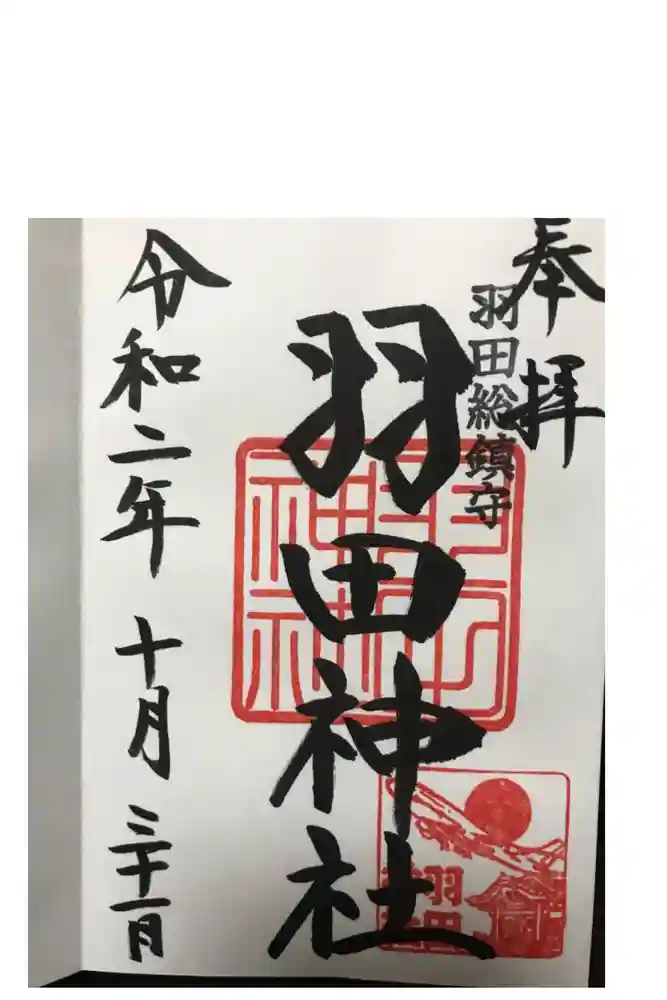 奉拝
羽田総鎮守
羽田神社
令和二年 十月 三十一日
羽田神社